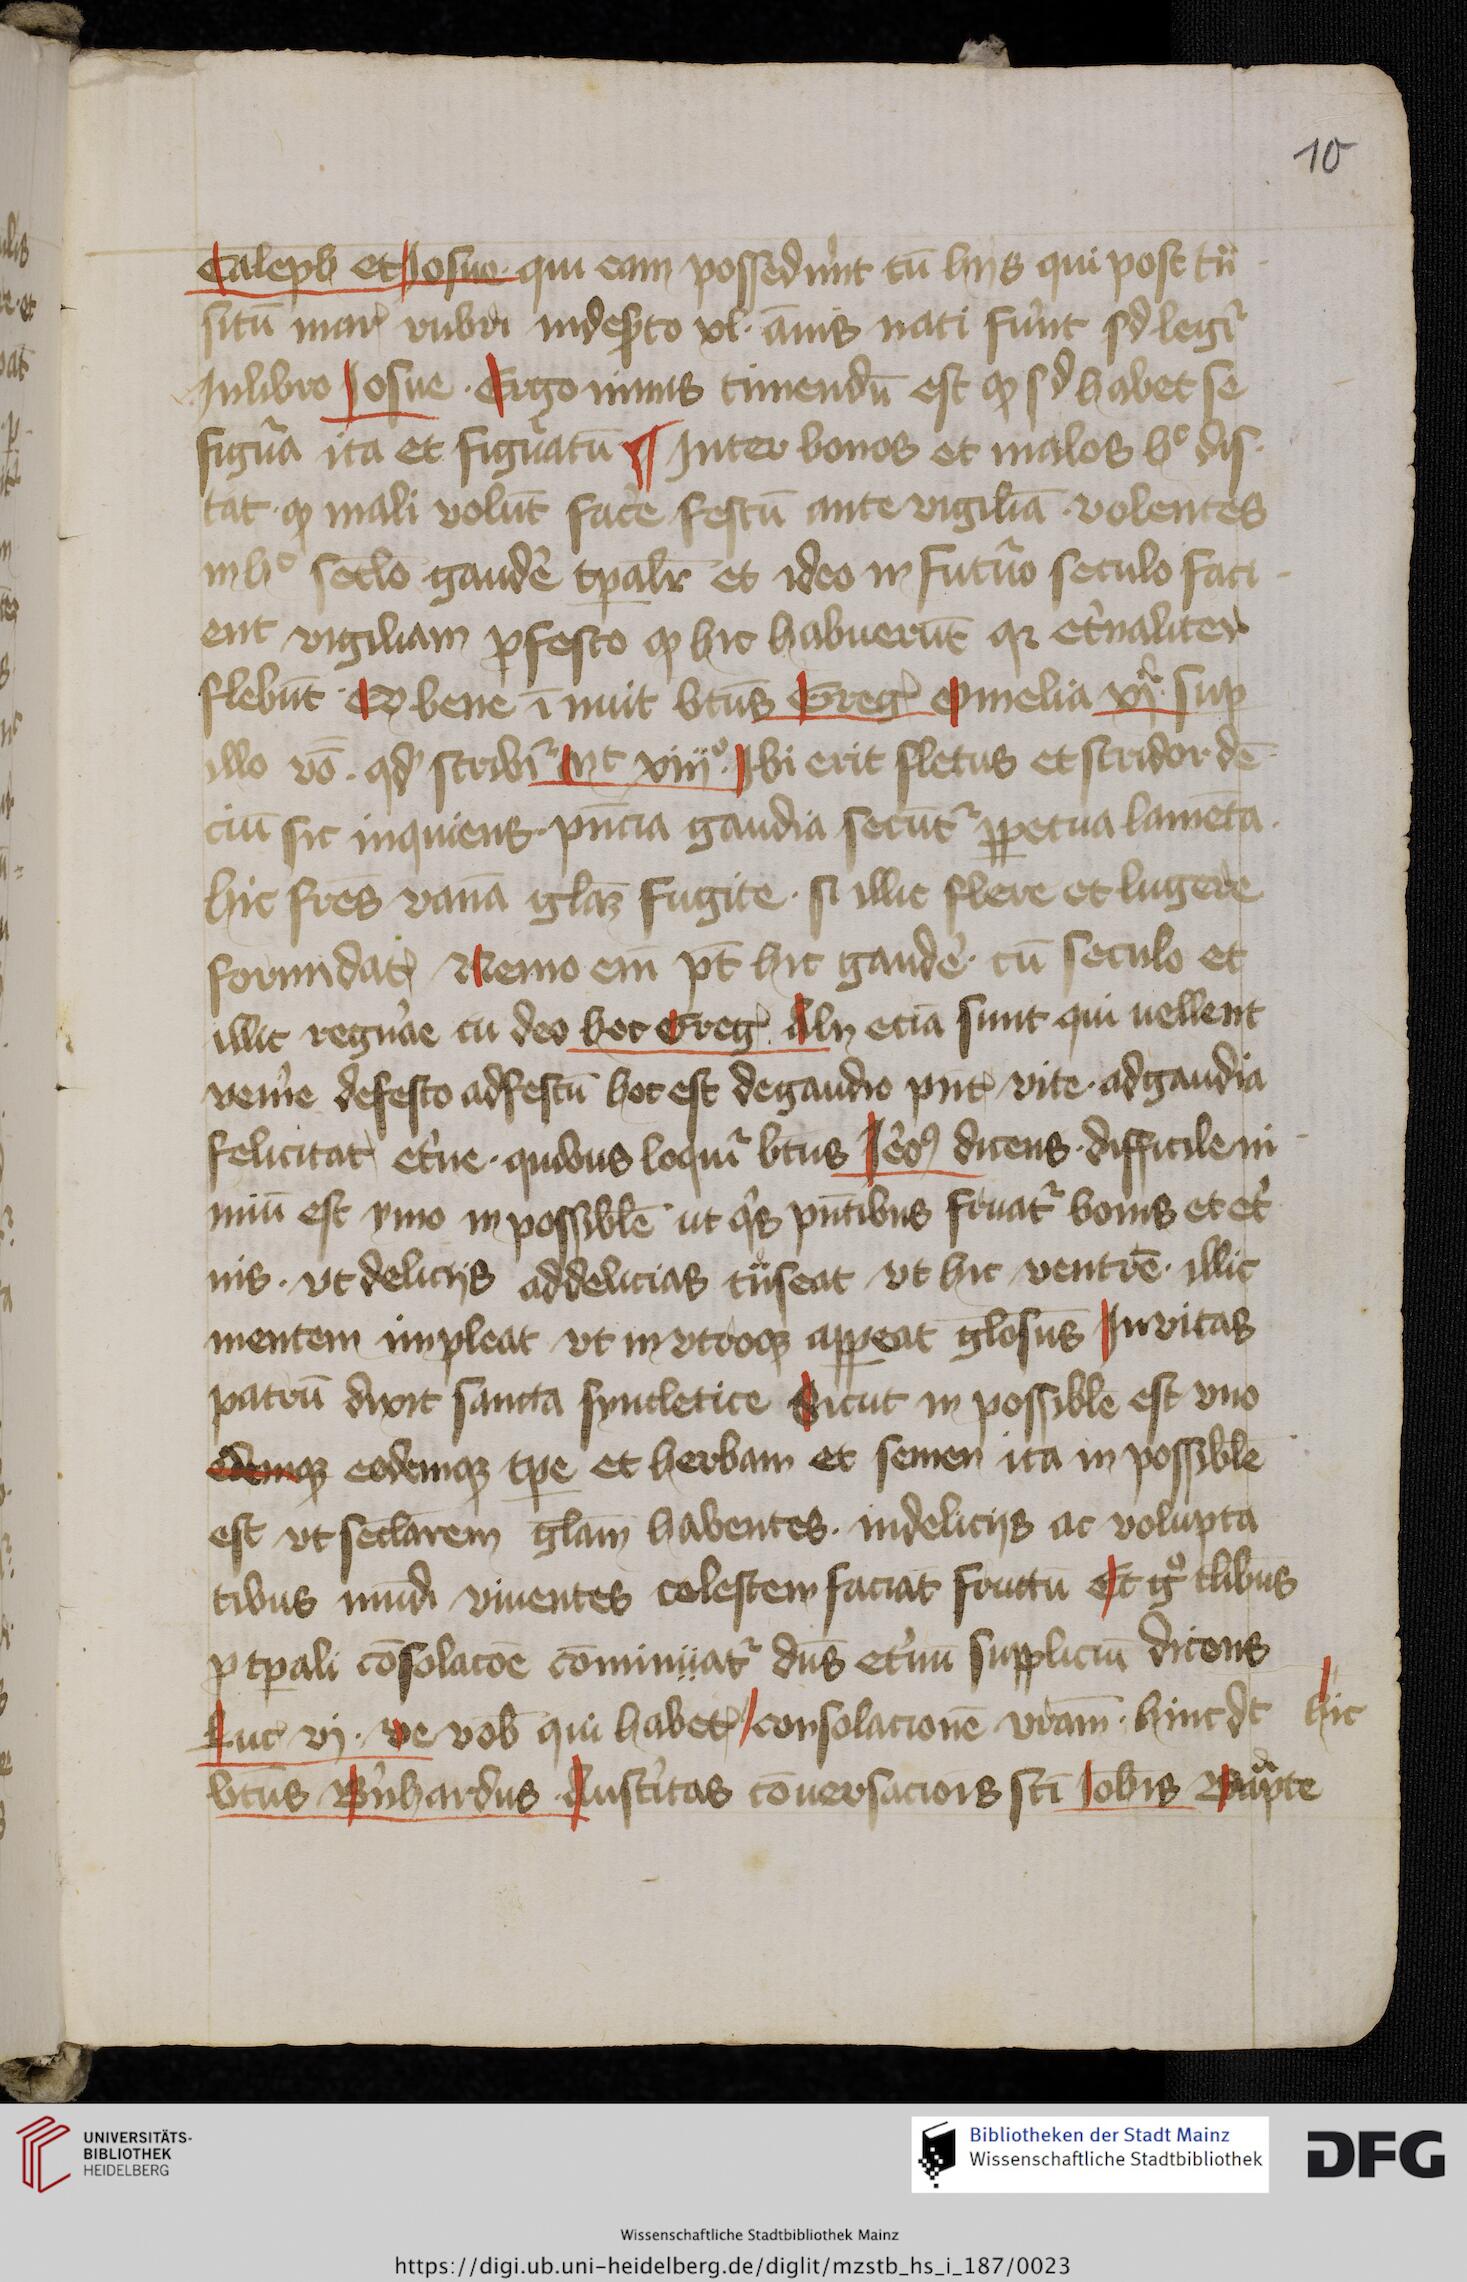 10
Caleph et Josue · qui eam possederu̅t cu̅ hijs qui post tn̅
situ̅ mar̕ rubri in deserto xl · a̅nis nati fu̕nt sᷣd legiť
Jn libro Josue · Ergo nimis timendu̅ est ꝙ sᷣd habet se
figu̕a ita et figu̕atu̅ ¶ Jnter bonos et malos hᵒ dis
tat · ꝙ mali volu̅t face̕ festu̅ ante vigilia̅ · volentes
in hᵒ sec̅lo gaude̕ tp̅alr̕ et ideo in futu̕o seculo faci
ent vigiliam ꝓ festo ꝙ hic habueru̅t qꝛ et̕naliter
flebu̅t · Qᷣ bene i̅nuit bt̅us Greg̕ Omelia xij · sup
illo vo̅ · qd̕ scribiť Mt xiiijᵒ · Jbi erit fletus et stridor de̅
ciu̅ sic inquiens · pn̅cia gaudia secu̅ť ꝑpetua lame̅ta ·
hic fr̅es vana̅ gl̅aꝫ fugite · si illic flere et lugere
formidat̕ Nemo em̅ pt̅ hic gaude̕ · cu̅ seculo et
illic regna̕e cu̅ deo hec Greg̕ · Alij ecia̅ sunt qui uellent
veni̕e de festo ad festu̅ hoc est de gaudio pn̅t̕ vite · ad gaudia
felicitat̕ et̕ne · quibus loquiť bt̅us Je̕oꝰ dicens · difficile ni
miu̅ est ymo in possible̅ ut qᷤs pn̅tibus fruať bonis et et̕
nis · vt delicijs ad delicias tn̅seat vt hic ventre̅ · illic
mentem impleat vt in vtroqꝫ appeat gl̅osus Jn vitas
patru̅ dixit sancta syncletice Sicut in possible̅ est vno
demqꝫ eodemqꝫ tp̅e et herbam et semen ita in possible̅
est vt secl̅arem gl̅am habentes · in delicijs ac volupta
tibus mu̅di viuentes celestem facia̅t fructu̅ Et gᵒ tl̅ibus
ꝓ tp̅ali co̅solaco̅e co̅minaať dn̅s et̕nu̅ suppliciu̅ dicens
Luc vj · ve vob̅ qui habet̕ consolacione̅ vr̅am · hinc dt̅ hic
bt̅us B̕nhardus Aust̕itas co̅uersacio̅is sc̅i Jobi̅s Bapᷓte
UNIVERSITÄTS-
BIBLIOTHEK
HEIDELBERG
Bibliotheken der Stadt Mainz
Wissenschaftliche Stadtbibliothek
DFG
Wissenschaftliche Stadtbibliothek Mainz
https://digi.ub.uni-heidelberg.de/diglit/mzstb_hs_i_187/0023